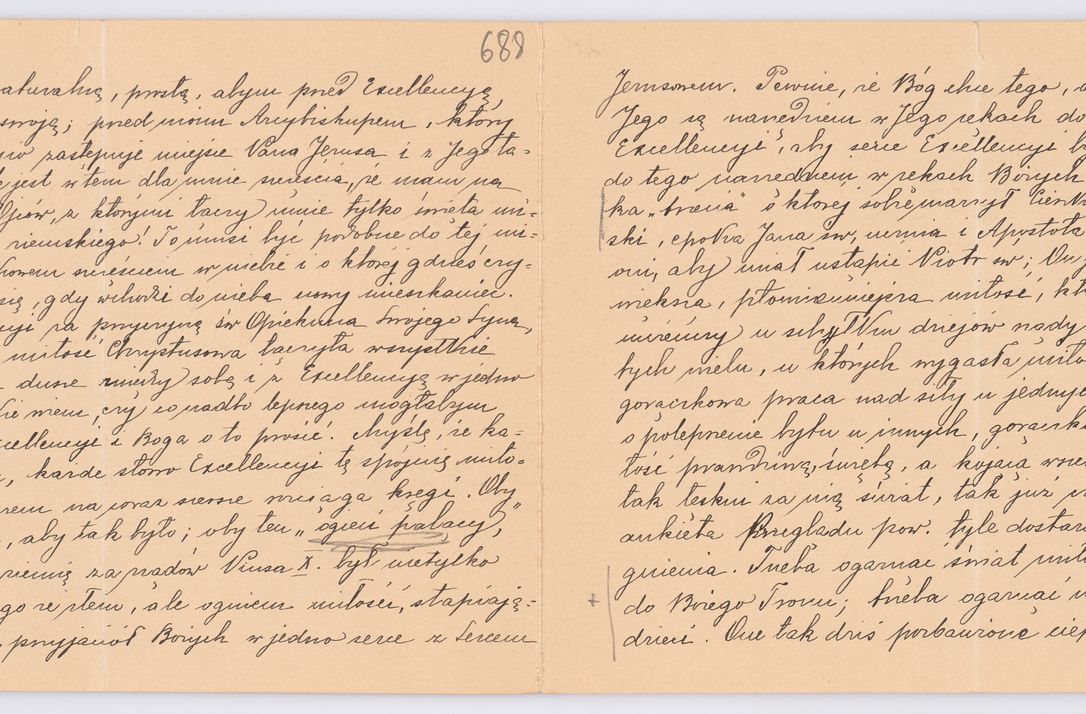 688
aturalną, prostą, abym przed Excellencyą,
swoją; przed moim Arcybiskupem, który
zastępuje miejsce Pana Jezusa i z Jego ła-
jest w tem dla mnie szczęścia, że mam na
Ojców, z którymi łączy mnie tylko święta mi-
ziemskiego! To musi być podobne do tej mi-
szczęściem w niebie i o której gdzieś czy-
się, gdy wchodzi do nieba nowy mieszkaniec.
za przyczyną św Opiekuna Swojego Syna,
miłość Chrystusowa łączyła wszystkie
dusze między sobą i z Excellencyą w jedno
nie wiem, czy co nadto lepszego mogłabym
xcellencyi i Boga o to prosić. Myślę, że ka-
, każde słowo Excellencyi tę spójnię miło-
na coraz szersze wciąga kręgi. Oby
, aby tak było; oby ten „ogień pałający"
ziemię za rządów Piusa X. był nietylko
go ze złem, ale ogniem miłości, stapiają-
, przyjaciół Bożych w jedno serce z Sercem
Jezusowem. Pewnie, że Bóg chce tego, a
Jego są narzędziem w Jego rękach do
Excellencyi, aby serce Excellencyi b
do tego narzędziem w rękach Bożych
ka „trzecia" o której sobie marzył Cieszko
ski, epoka Jana św, ucznia i Apostoła
oni, aby miał ustąpić Piotr św; On p
większa, płomienniejsza miłość, kt
wieńczy u schyłku dziejów nady
tych wielu, u których wygasła miło
gorączkowa praca nad siły u jednyc
o polepszenie bytu u innych, gorączk
łość prawdziwą, świętą, a kojącą wsz
tak teskni za nią świat, tak już
ankieta Przeglądu pow. tyle dostar
gnienia. Trzeba ogarnąć świat miło
do Bożego Tronu; trzeba ogarnąć
dzieci. One tak dziś pozbawione ciep